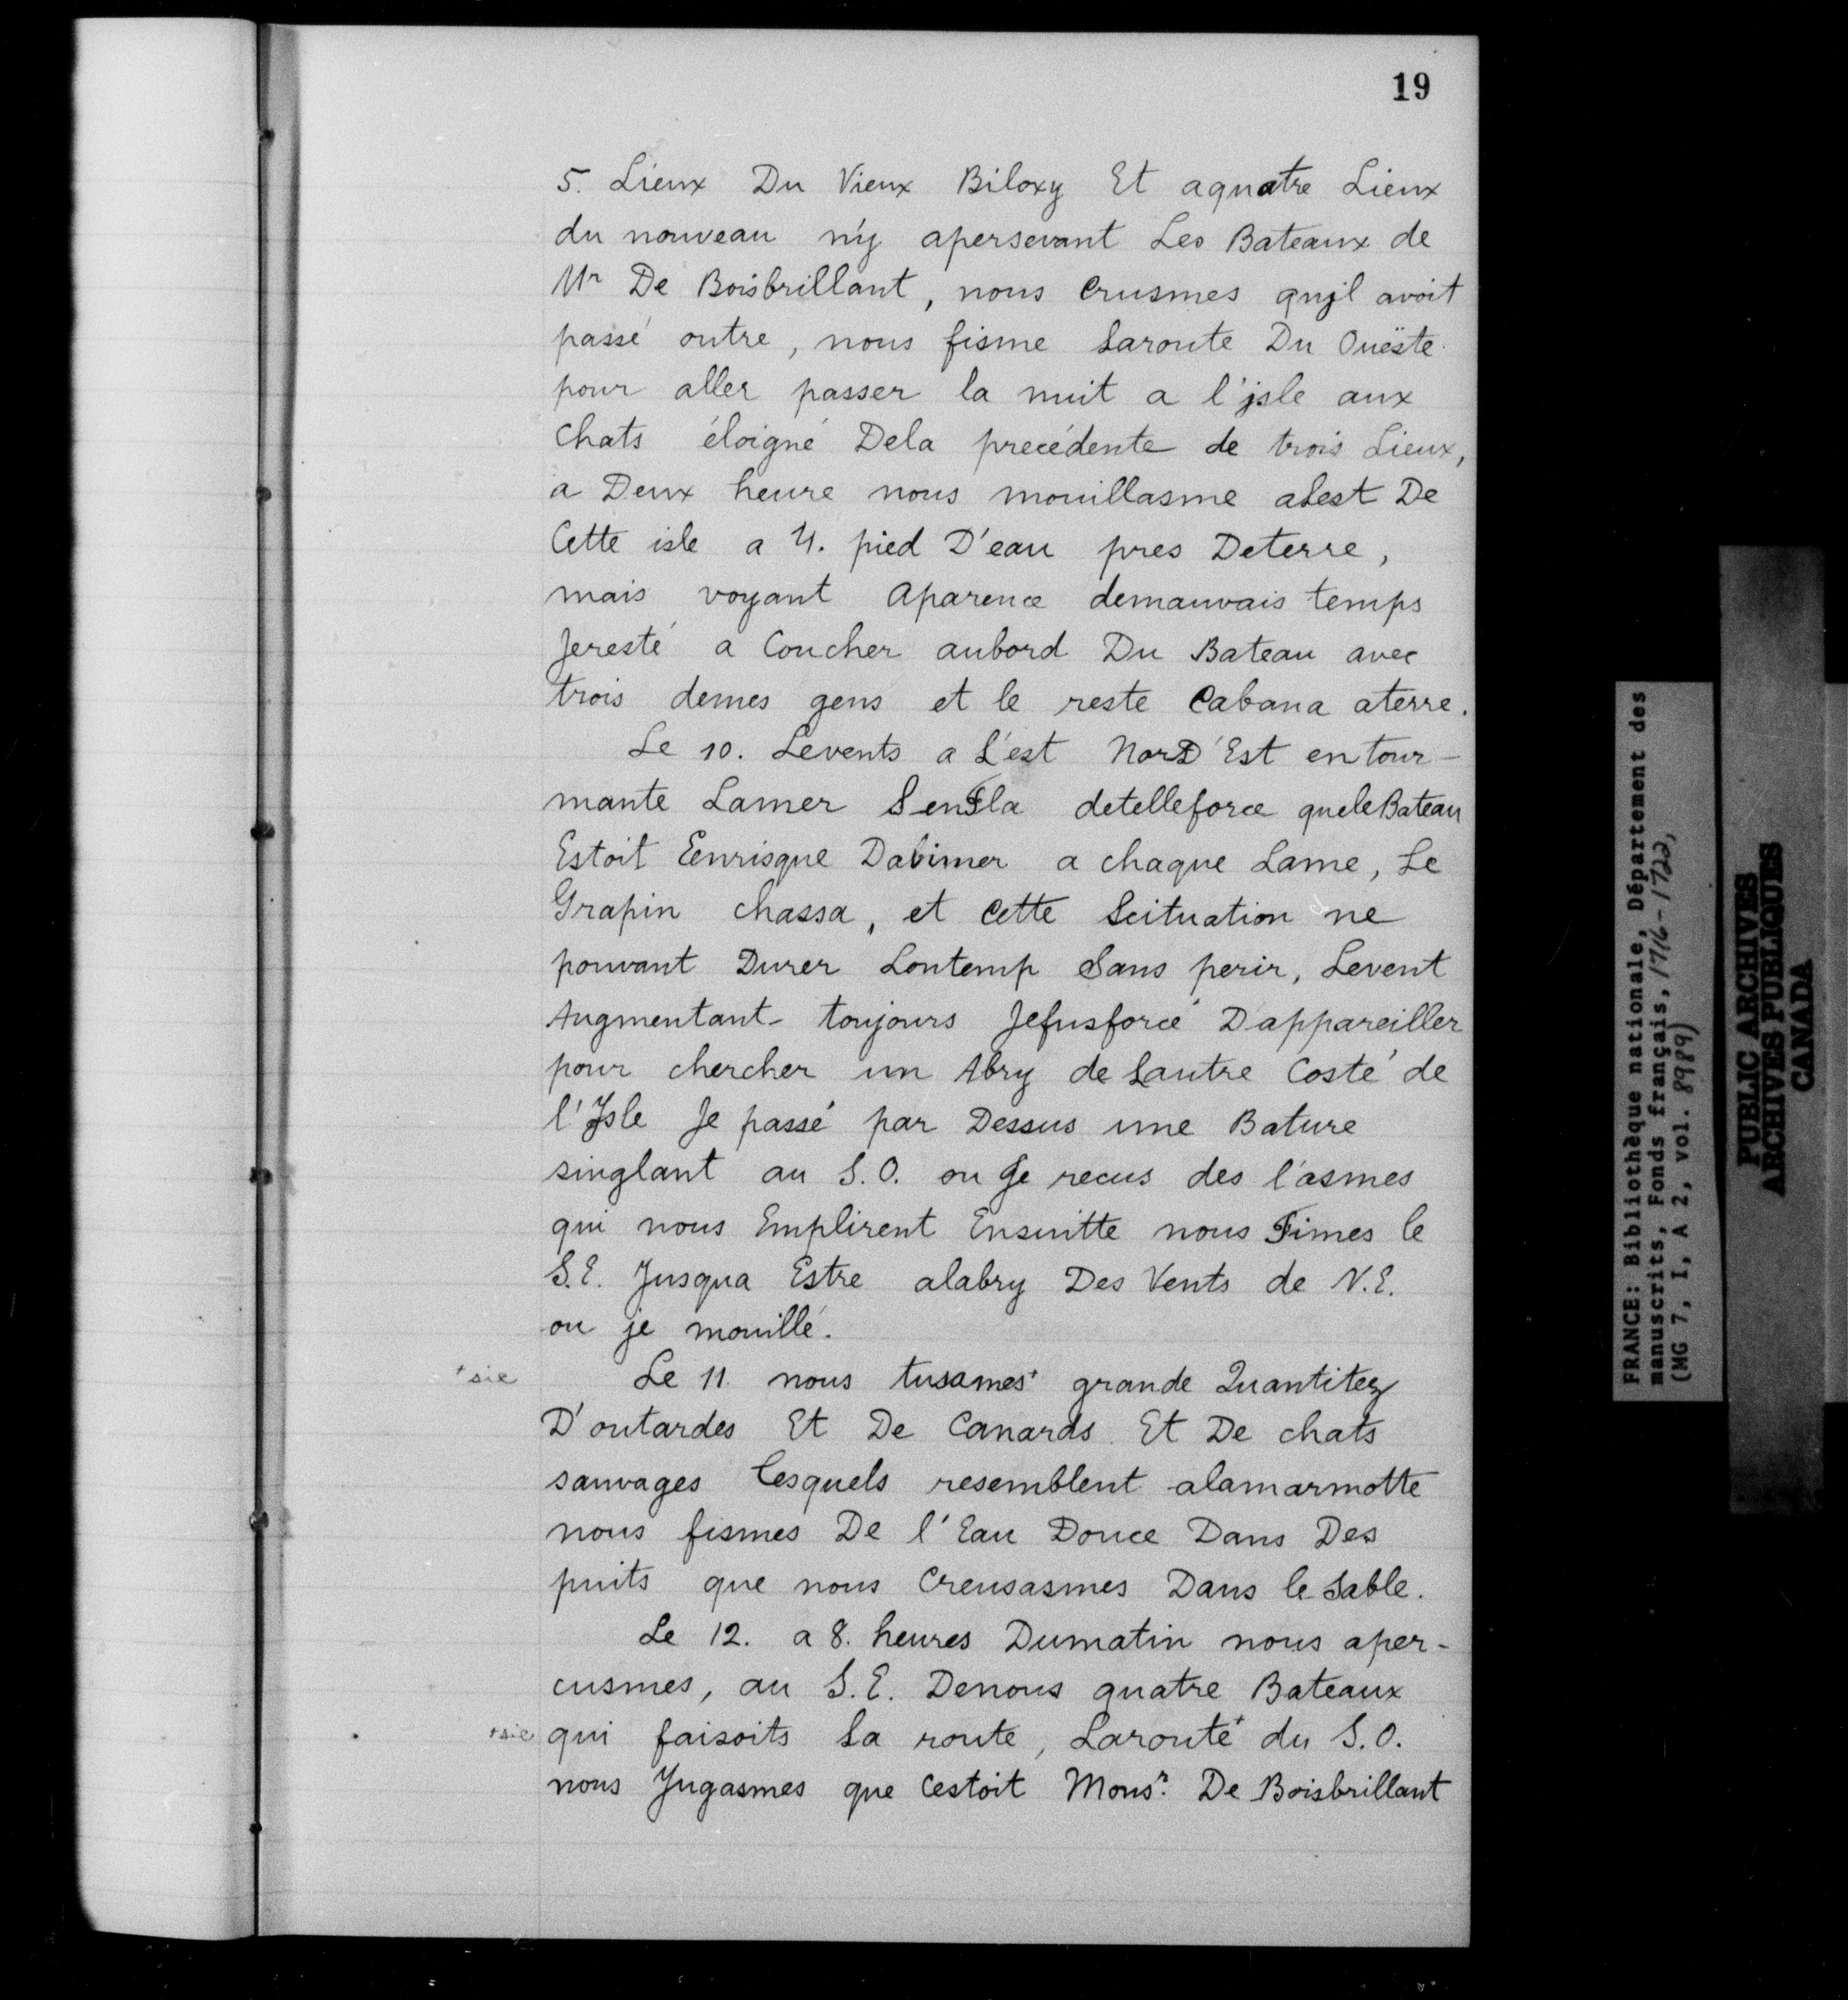 19
5. Lieux Du Vieux Biloxy Et aquatre Lieux
du nouveau n'y apersevant Les Bateaux de
Mr De Boisbrillant, nous Crusmes qujl avoit
passé outre, nous fisme Laroute Du Ouëste
pour aller passer la nuit a l'jsle aux
Chats éloigné Dela precédente de trois Lieux,
a Deux heure nous mouillasme aLest De
Cette isle a 4. pied D'eau pres Deterre,
mais voyant Aparence demauvais temps
Jeresté a Coucher aubord Du Bateau avec
trois demes gens et le reste Cabana aterre.
Le 10. Levents a L'est Nord'Est en tour-
mante Lamer Senfla detelleforce queleBateau
Estoit Eenrisque Dabimer a chaque Lame, Le
Grapin chassa, et Cette Scituation ne
pouvant Durer Lontemp Sans perir, Levent
Augmentant toujours Jefusforcé Dappareiller
pour chercher un Abry de Lautre Costé de
l'Jsle Je passé par Dessus une Bature
singlant au S.O. ou Je recus des l'asmes
qui nous Emplirent Ensuitte nous Fimes le
S.E. Jusqua Estre alabry Des Vents de N.E.
ou je mouillé.
+sic Le 11. nous tusames+ grande Quantitez
D'outardes Et De Canards Et De chats
sauvages Lesquels resemblent alamarmotte
nous fismes De l'Eau Douce Dans Des
puits que nous Creusasmes Dans le Sable.
Le 12. a 8. heures Dumatin nous aper-
cusmes, au S.E. Denous quatre Bateaux
+sic qui faisoits La route, Laroute+ du S.O.
nous Jugasmes que Cestoit Monsr. De Boisbrillant
FRANCE: Bibliothèque nationale, Département des
manuscrits, Fonds français, 1716-1722,
(MG 7, I, A 2, vol. 8989)
PUBLIC ARCHIVES
ARCHIVES PUBLIQUES
CANADA